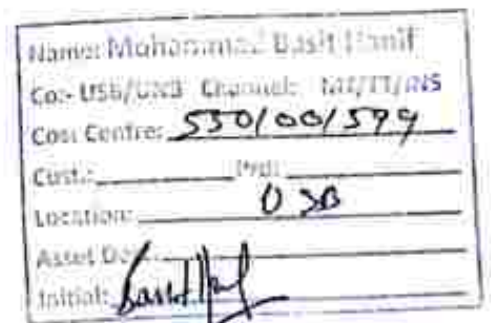 Name: Muhammad Basit Hanif
Co:- USB/UNB Channel: MT/TT/INS
Cost Centre: 550/00/599
Cust.: Prd:
Location: USB
Asset
Initial: